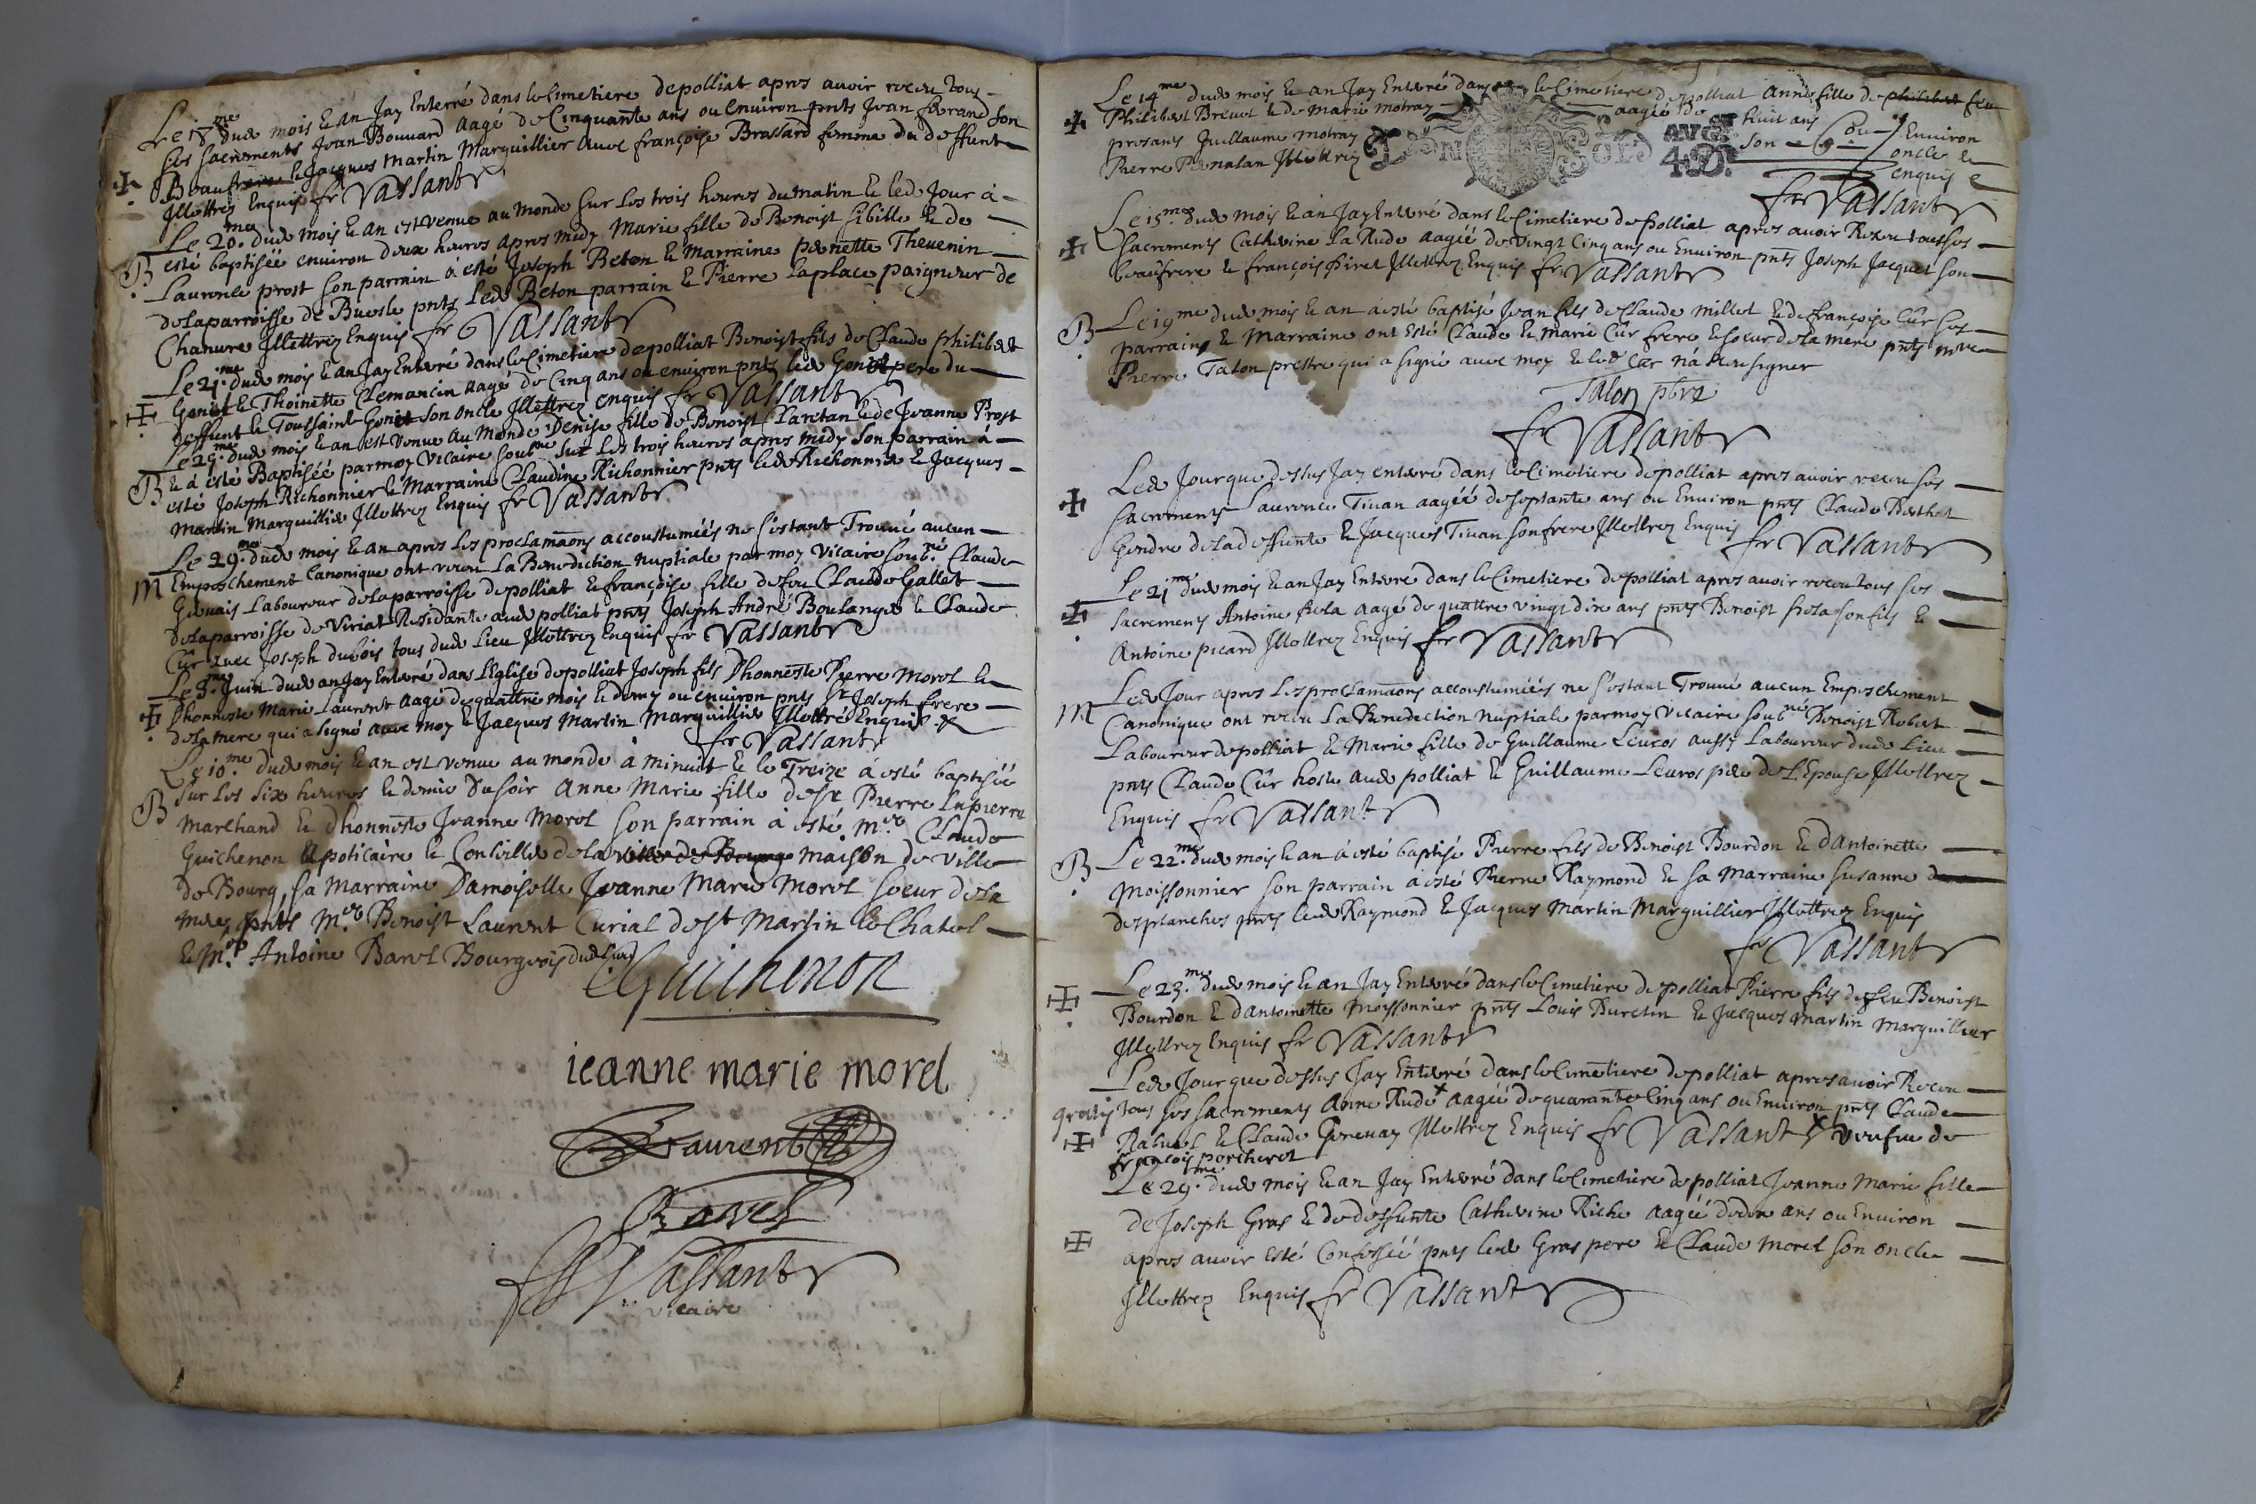 Le 18.me dud mois & an Jay Enterré dans le Cimetiere de polliat apres avoir receu tous
ses sacrements Jean Bouvard aagé de Cinquante ans ou Environ pnts Jean ferand son
Beaufrere & Jacques Martin Marguillier avec françoise Brassard femme du deffunt
Illettrez Enquis fr Vassant
Le 20.me dud mois & an est venue au monde sur les trois heures du matin & led Jour à
esté baptiséé environ deux heures apres midy Marie fille de Benoist sibille & de
Laurence prost son parrain à esté Joseph Beton & Marraine pernette Thevenin
de la parroisse de Buesle pnts led Beton parrain & Pierre Laplace paigneur de
Chanvre Illettrez Enquis fr Vassant
Le 21.me dud mois & an Jay Enterré dans le Cimetiere de polliat Benoist fils de Claude philibert
Goniet & Thoinette Clemancin aagé de Cinq ans ou environ pnts led Goniet pere du
deffunt & Toussaint Goniet son oncle Illettrez enquis fr Vassant
Le 25.me dud mois & an est venue au Monde Denise fille de Benoist Claritan & de Jeanne Prost
B & à esté Baptiséé par moy Vicaire soub.né sur les trois heures apres midy son parrain à
esté Joseph Richonnier & Marraine Claudine Richonnier pnts led Richonnier & Jacques
Martin Marguillier Illettrez Enquis fr Vassant
Le 29.me dud mois & an apres les proclamaons accoustuméés ne s'estant Trouvé aucun
M Empeschement Canonique ont receu La Benediction nuptiale par moy Vicaire soub.né Claude
Gervais Laboureur de la parroisse de polliat & françoise fille de feu Claude Gallet
de la parroisse de Viriat Residante aud polliat pnts Joseph André Boulanger & Claude
Cûr avec Joseph dubois tous dud Lieu Illettrez Enquis fr Vassant
Le 3.me Juin dud an Jay Enterré dans L'Eglise de polliat Joseph fils D'honneste Pierre Morel &
D'honneste Marie Laurent aagé de quattre mois & demy ou environ pnts Sr Joseph frere
de la mere qui a signé avec moy & Jacques Martin Marguillier Illettré Enquis
fr Vassant
Le 10.me dud mois & an est venue au monde à minuit & le Treize à esté baptiséé
B sur les six heures & demie du soir Anne Marie fille de Sr Pierre Lapierre
Marchand & D'honneste Jeanne Morel son parrain à esté M.e Claude
Guichenon Apoticaire & Conseiller de la ville de Bourg maison de ville
de Bourg, sa Marraine Damoiselle Jeanne Marie Morel soeur de la
mere, pnts M.e Benoist Laurent Curial de St Martin le Chatel
& M.e Antoine Ravel Bourgeois dud Lieu
Guichenon
ieanne marie morel
Laurent
Ravel
fr Vassant
vicaire
Le 14.me dud mois & an Jay Enterré dans le Cimetiere de polliat Anne fille de philibert feu
Philibert Brevet & de Marie Motray aagée de huit ans ou Environ
presants Guillaume Motray son oncle &
Pierre Renatan Illettrez enquis
LION SOLS
AUGM
4 D.
fr Vassant
Le 15.me dud mois & an Jay Enterré dans le Cimetiere de Polliat apres avoir Receu tous ses
sacrements Catherine La Rude aagéé de vingt Cinq ans ou Environ pnts Joseph Jacquet son
beaufrere & françois Piret Illettrez Enquis fr Vassant
B Le 19.me dud mois & an à esté baptisé Jean fils de Claude Millet & de françoise Cûr ses
parrain & Marraine ont Esté Claude & Marie Cûr frere & soeur de la mere pnts mre
Pierre Talon prestre qui a signé avec moy & led Cûr n'à sceu signer
Talon pbre
fr Vassant
Led Jour que dessus Jay enterré dans le Cimetiere de polliat apres avoir receu ses
sacrements Laurence Tivan aagéé de septante ans ou Environ pnts Claude Berthet
Gendre de la deffunte & Jacques Tivan son frere Illettrez Enquis fr Vassant
Le 21.me dud mois & an Jay Enterré dans le Cimetiere de polliat apres avoir receu tous ses
sacrements Antoine fiela aagé de quattre vingt dix ans pnts Benoist fiela son fils &
Antoine picard Illettrez Enquis fr Vassant
M Led Jour apres Les proclamaons accoustuméés ne s'estant Trouvé aucun Empeschement
Canonique ont receu La Benediction nuptiale par moy Vicaire soub.né Benoist Robert
Laboureur de polliat & Marie fille de Guillaume Leuros aussy Laboureur dud Lieu
pnts Claude Cûr hoste aud polliat & Guillaume Leuros pere de L'Epouse Illettrez
Enquis fr Vassant
B Le 22.me dud mois & an à esté baptisé Pierre fils de Benoist Bourdon & d'Antoinette
Moissonnier son parrain à esté Pierre Raymond & sa Marraine Susanne
desplanches pnts led Raymond & Jacques Martin Marguillier Illettrez Enquis
fr Vassant
Le 23.me dud mois & an Jay Enterré dans le Cimetiere de polliat Pierre fils de feu Benoist
Bourdon & d'Antoinette Moissonnier pnts Louis Buretin & Jacques Martin Marguillier
Illettrez Enquis fr Vassant
Led Jour que dessus Jay Enterré dans le Cimetiere de polliat apres avoir Receu
gratis tous ses sacrements Anne Rude x aagéé de quarante Cinq ans ou Environ pnts Claude
Ratuel & Claude Gonevay Illettrez Enquis fr Vassant x veufve de
françois porcheret
Le 29.me dud mois & an Jay Enterré dans le Cimetiere de polliat Jeanne Marie fille
de Joseph Gras & de deffunte Catherine Riche aagéé de dix ans ou Environ
apres avoir Esté Confesséé pnts led Gras pere & Claude Morel son oncle
Illettrez Enquis fr Vassant